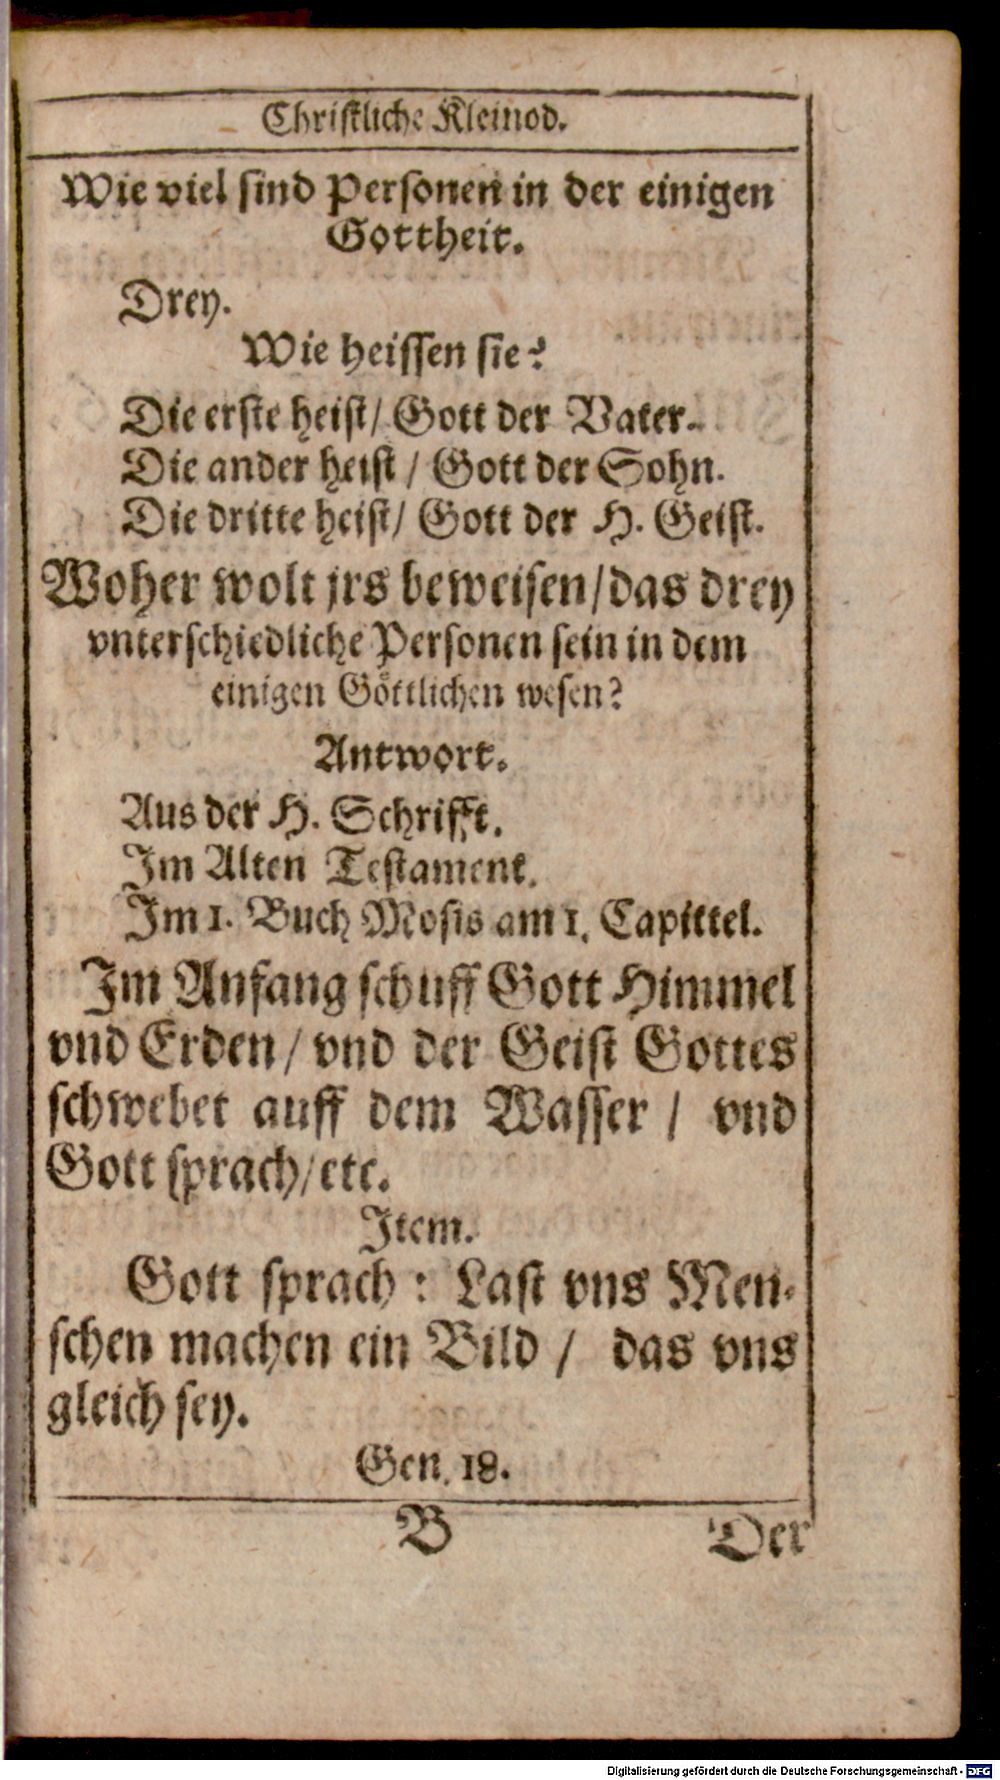 Christliche Kleinod.
Wie viel sind Personen in der einigen
Gottheit.
Drey.
Wie heissen sie?
Die erste heist/ Gott der Vater.
Die ander heist / Gott der Sohn.
Die dritte heist/ Gott der H. Geist.
Woher wolt jrs beweisen/das drey
vnterschiedliche Personen sein in dem
einigen Göttlichen wesen?
Antwort.
Aus der H. Schrifft.
Im Alten Testament.
Im 1. Buch Mosis am 1. Capittel.
Im Anfang schuff Gott Himmel
vnd Erden / vnd der Geist Gottes
schwebet auff dem Wasser / vnd
Gott sprach/etc.
Item.
Gott sprach : Last vns Men-
schen machen ein Bild / das vns
gleich sey.
Gen. 18.
B Der
Digitalisierung gefördert durch die Deutsche Forschungsgemeinschaft - DFG